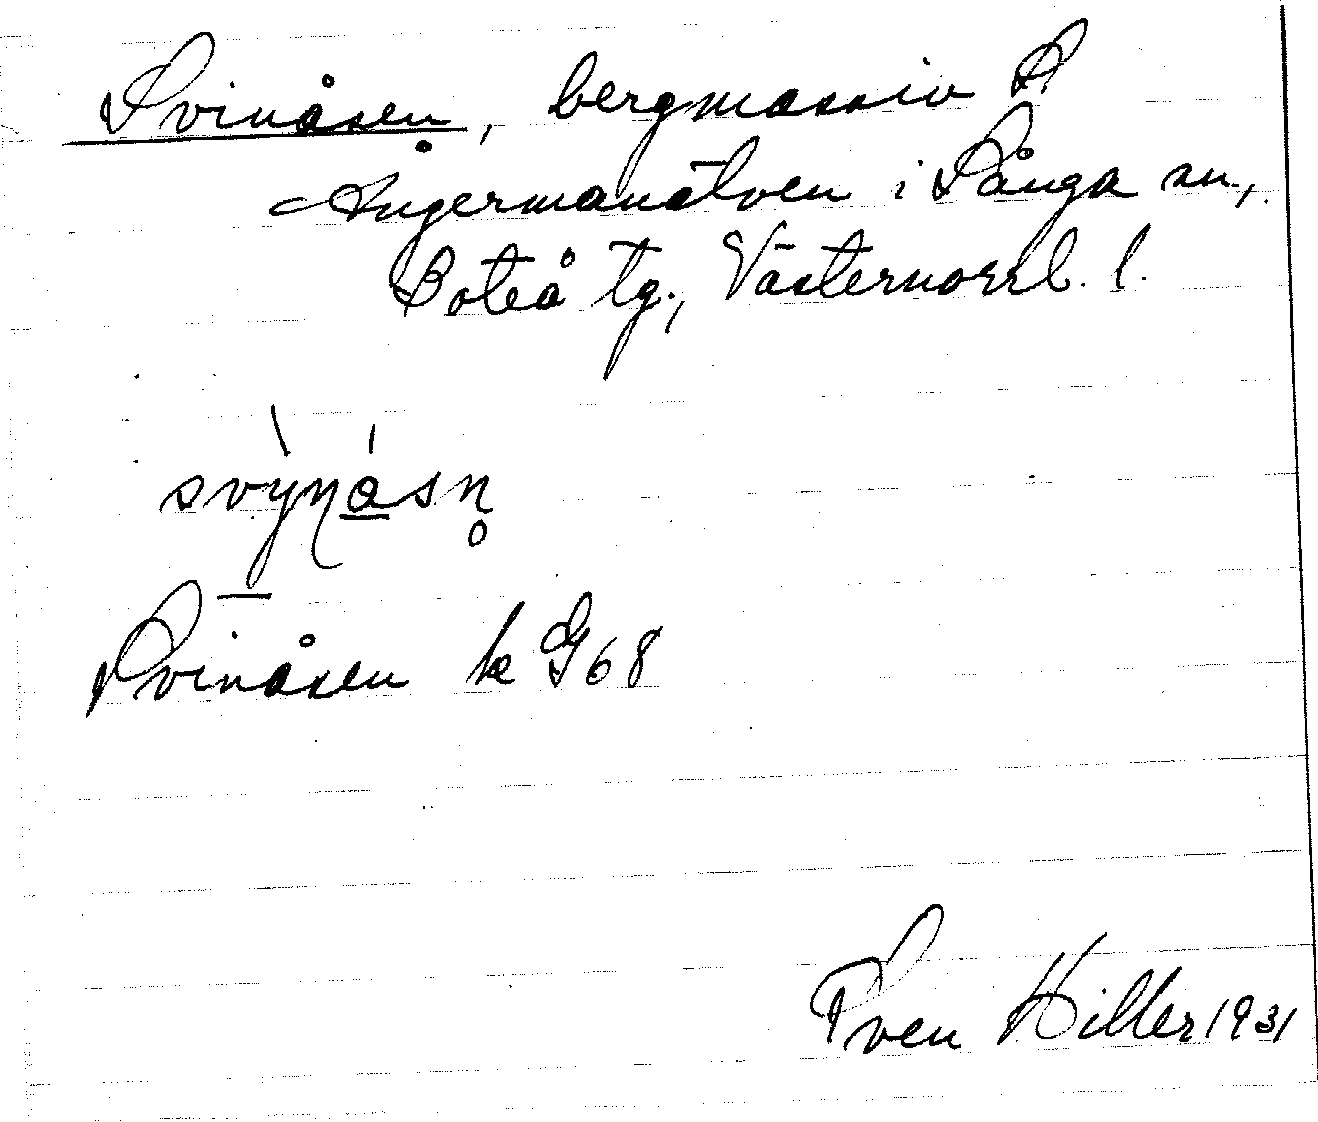 Svinåsen, bergmassiv S.
Ångermanälven i Sånga sn,
Boteå tg., Västernorrl. l.
Svinåsen k G68
Sven Hiller 1931